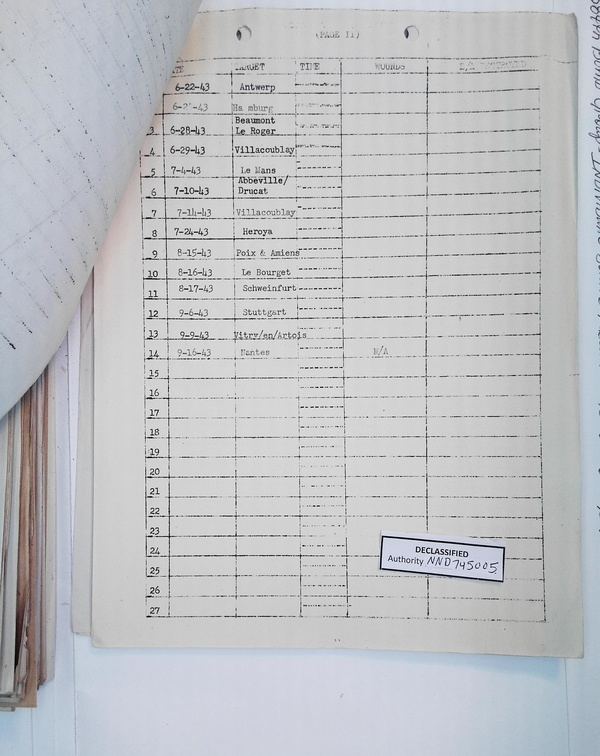 (PAGE II)
TARGET TIME WOUNDS
6-22-43 Antwerp
Hamburg
3 6-28-43 Beaumont
Le Roger
4 6-29-43 Villacoublay
5 7-4-43 Le Mans
6 7-10-43 Abbeville/
Drucat
7 7-14-43 Villacoublay
8 7-24-43 Heroya
9 8-15-43 Poix & Amiens
10 8-16-43 Le Bourget
11 8-17-43 Schweinfurt
12 9-6-43 Stuttgart
13 9-9-43 Vitry/en/Artois
14 9-16-43 Nantes N/A
15
16
17
18
19
20
21
22
23
24
25
26
27
DECLASSIFIED
Authority NND 745005